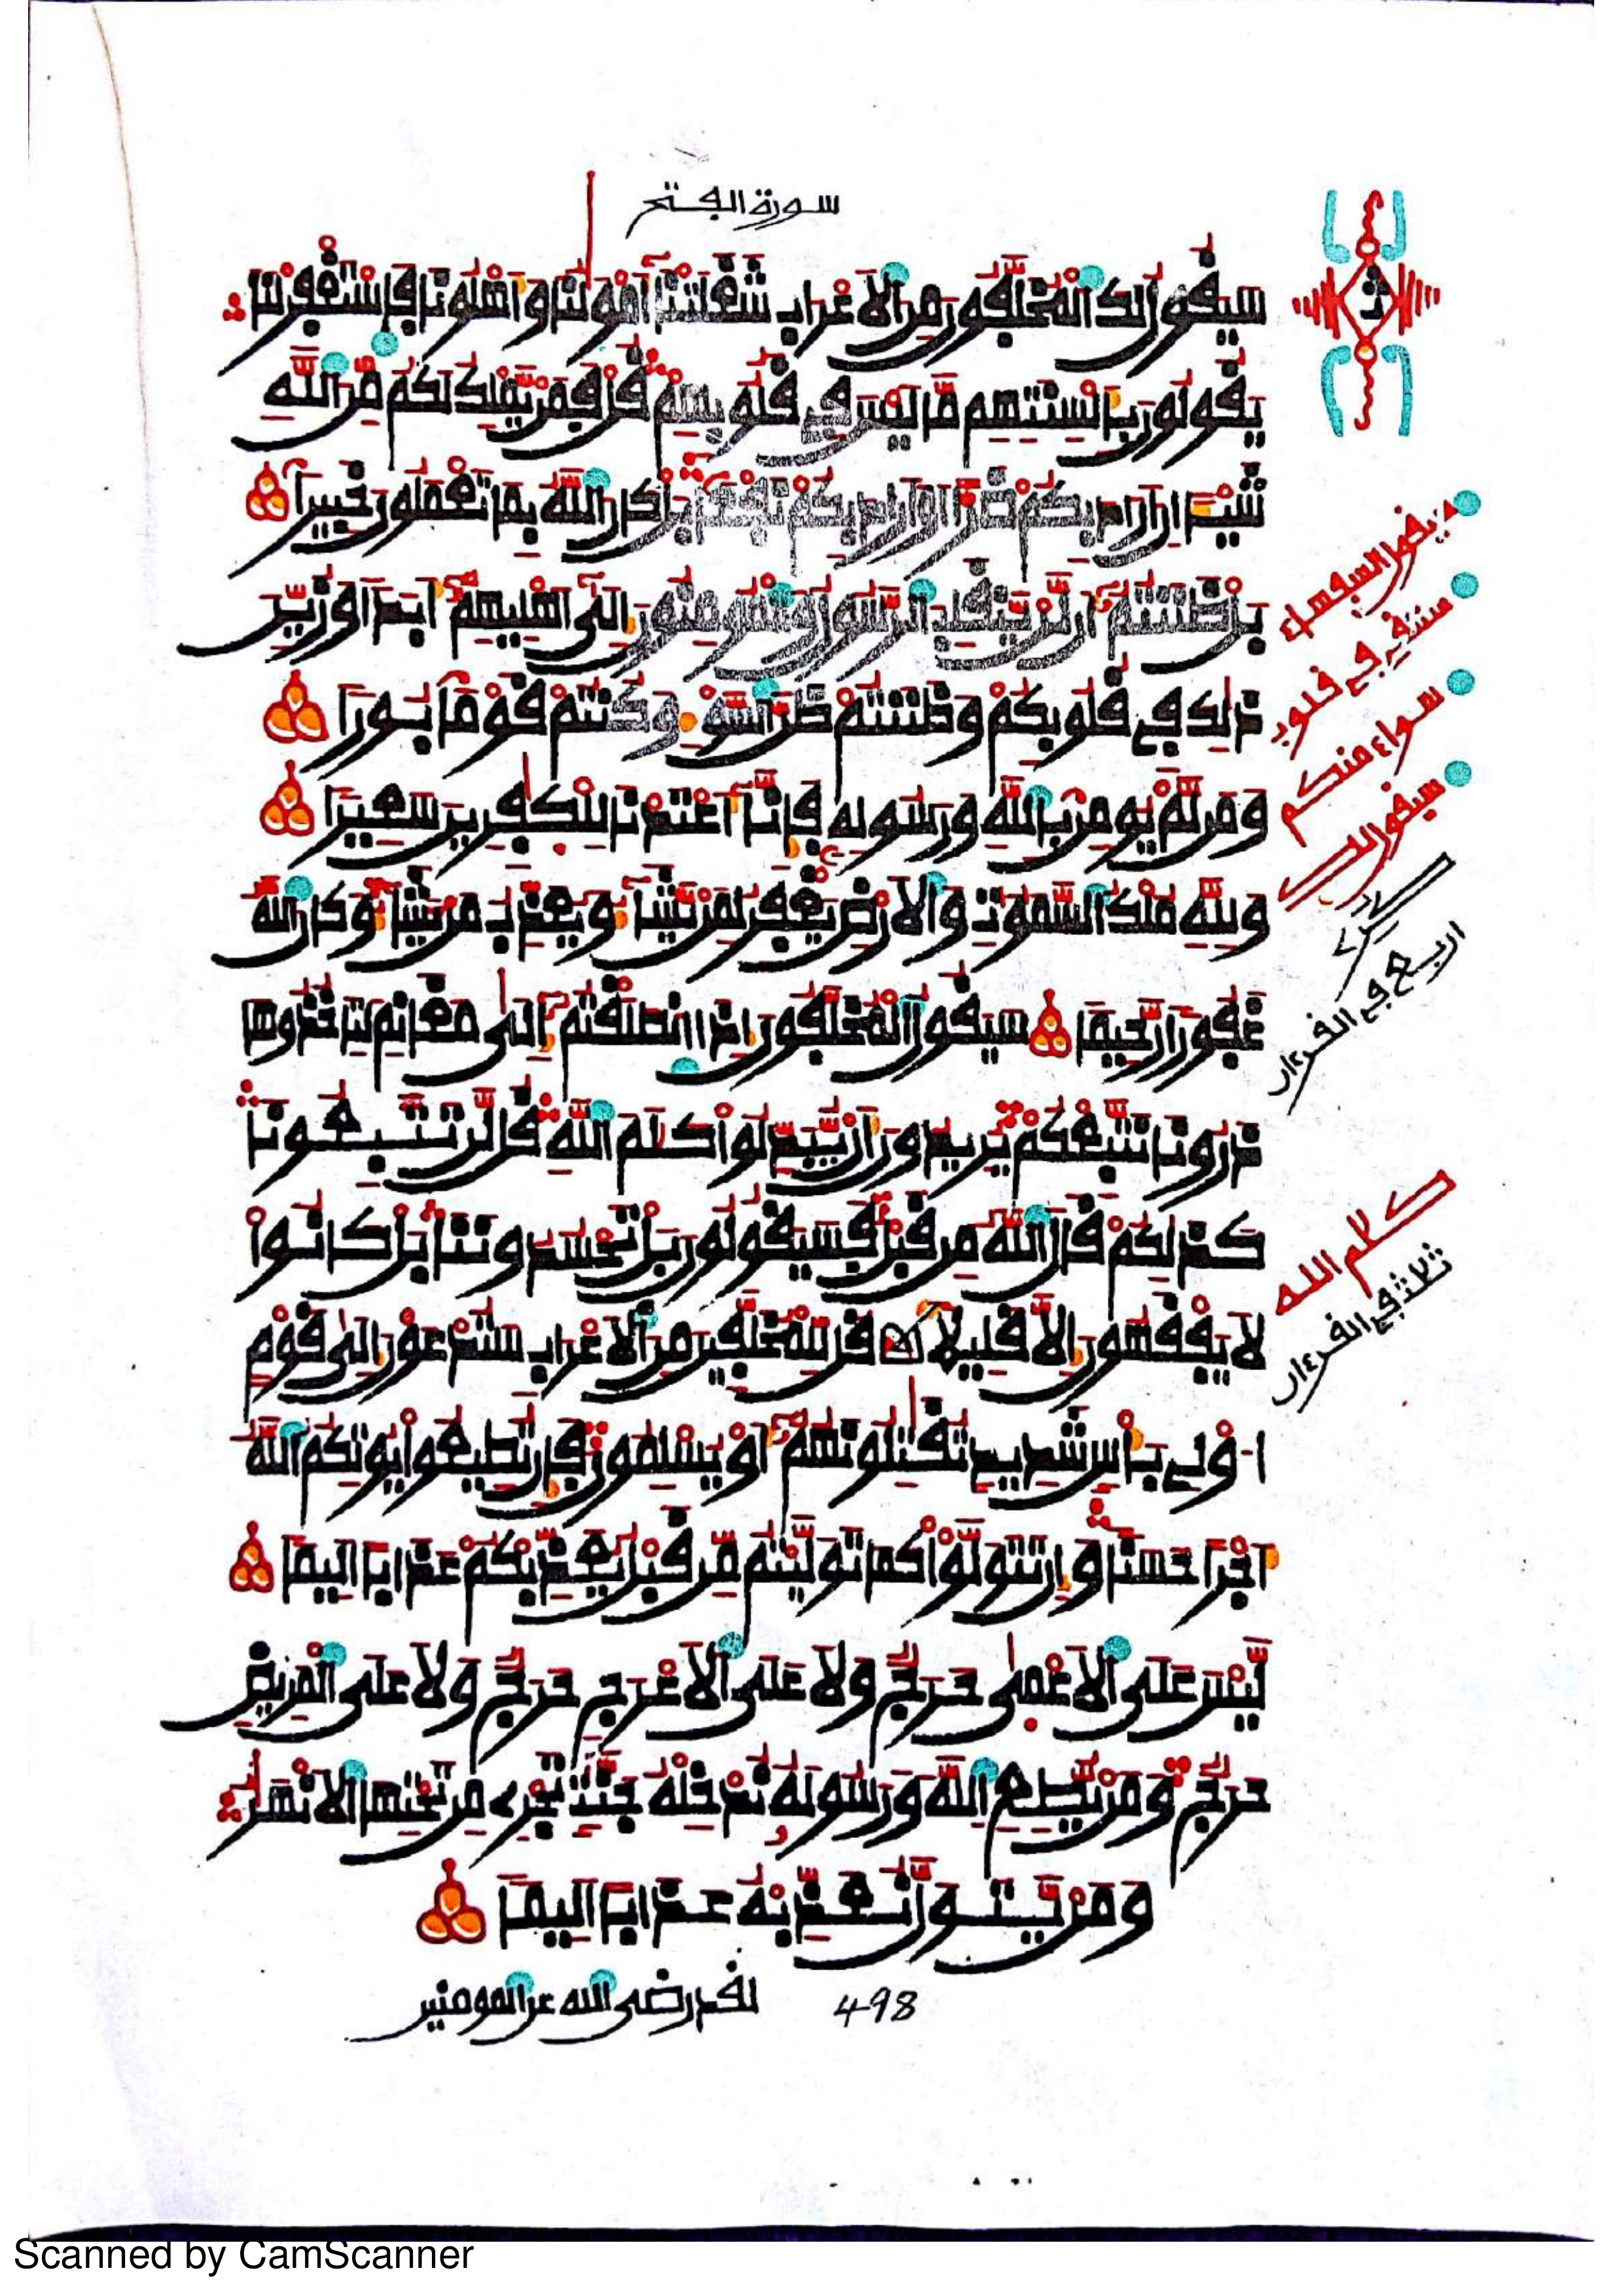 سورة الفتح
سيقول لك المخلفون من الاعراب شغلتنا أمولنا وأهلونا فاستغفر لنا
يقولون بألسنتهم ما ليس في قلوبهم قل فمن يملك لكم من الله
شيئا ان اراد بكم ضرا او اراد بكم نفعا بل كان الله بما تعملون خبيرا
بل ظننتم أن لن ينقلب الرسول والمومنون إلى أهليهم أبدا وزين
ذلك في قلوبكم وظننتم ظن السوء وكنتم قوما بورا
ومن لم يومن بالله ورسوله فإنا أعتدنا للكفرين سعيرا
ولله ملك السموت والارض يغفر لمن يشاء ويعذب من يشاء وكان الله
غفورا رحيما سيقول المخلفون إذا انطلقتم إلى مغانم لتاخذوها
ذرونا نتبعكم يريدون أن يبدلوا كلم الله قل لن تتبعونا
كذلكم قال الله من قبل فسيقولون بل تحسدوننا بل كانوا
لا يفقهون إلا قليلا قل للمخلفين من الاعراب ستدعون إلى قوم
اولي بأس شديد تقتلونهم أو يسلمون فإن تطيعوا يوتكم الله
أجرا حسنا وإن تتولوا كما توليتم من قبل يعذبكم عذابا اليما
ليس على الاعمى حرج ولا على الاعرج حرج ولا على المريض
حرج ومن يطع الله ورسوله ندخله جنت تجري من تحتها الانهر
ومن يتول نعذبه عذابا اليما
498 لقد رضي الله عن المومنين
يقول السفهاء
في قلوب
سواء منكم
سيقول لك
اربع في القرءان
كلم الله
ثلاث في القرءان
Scanned by CamScanner